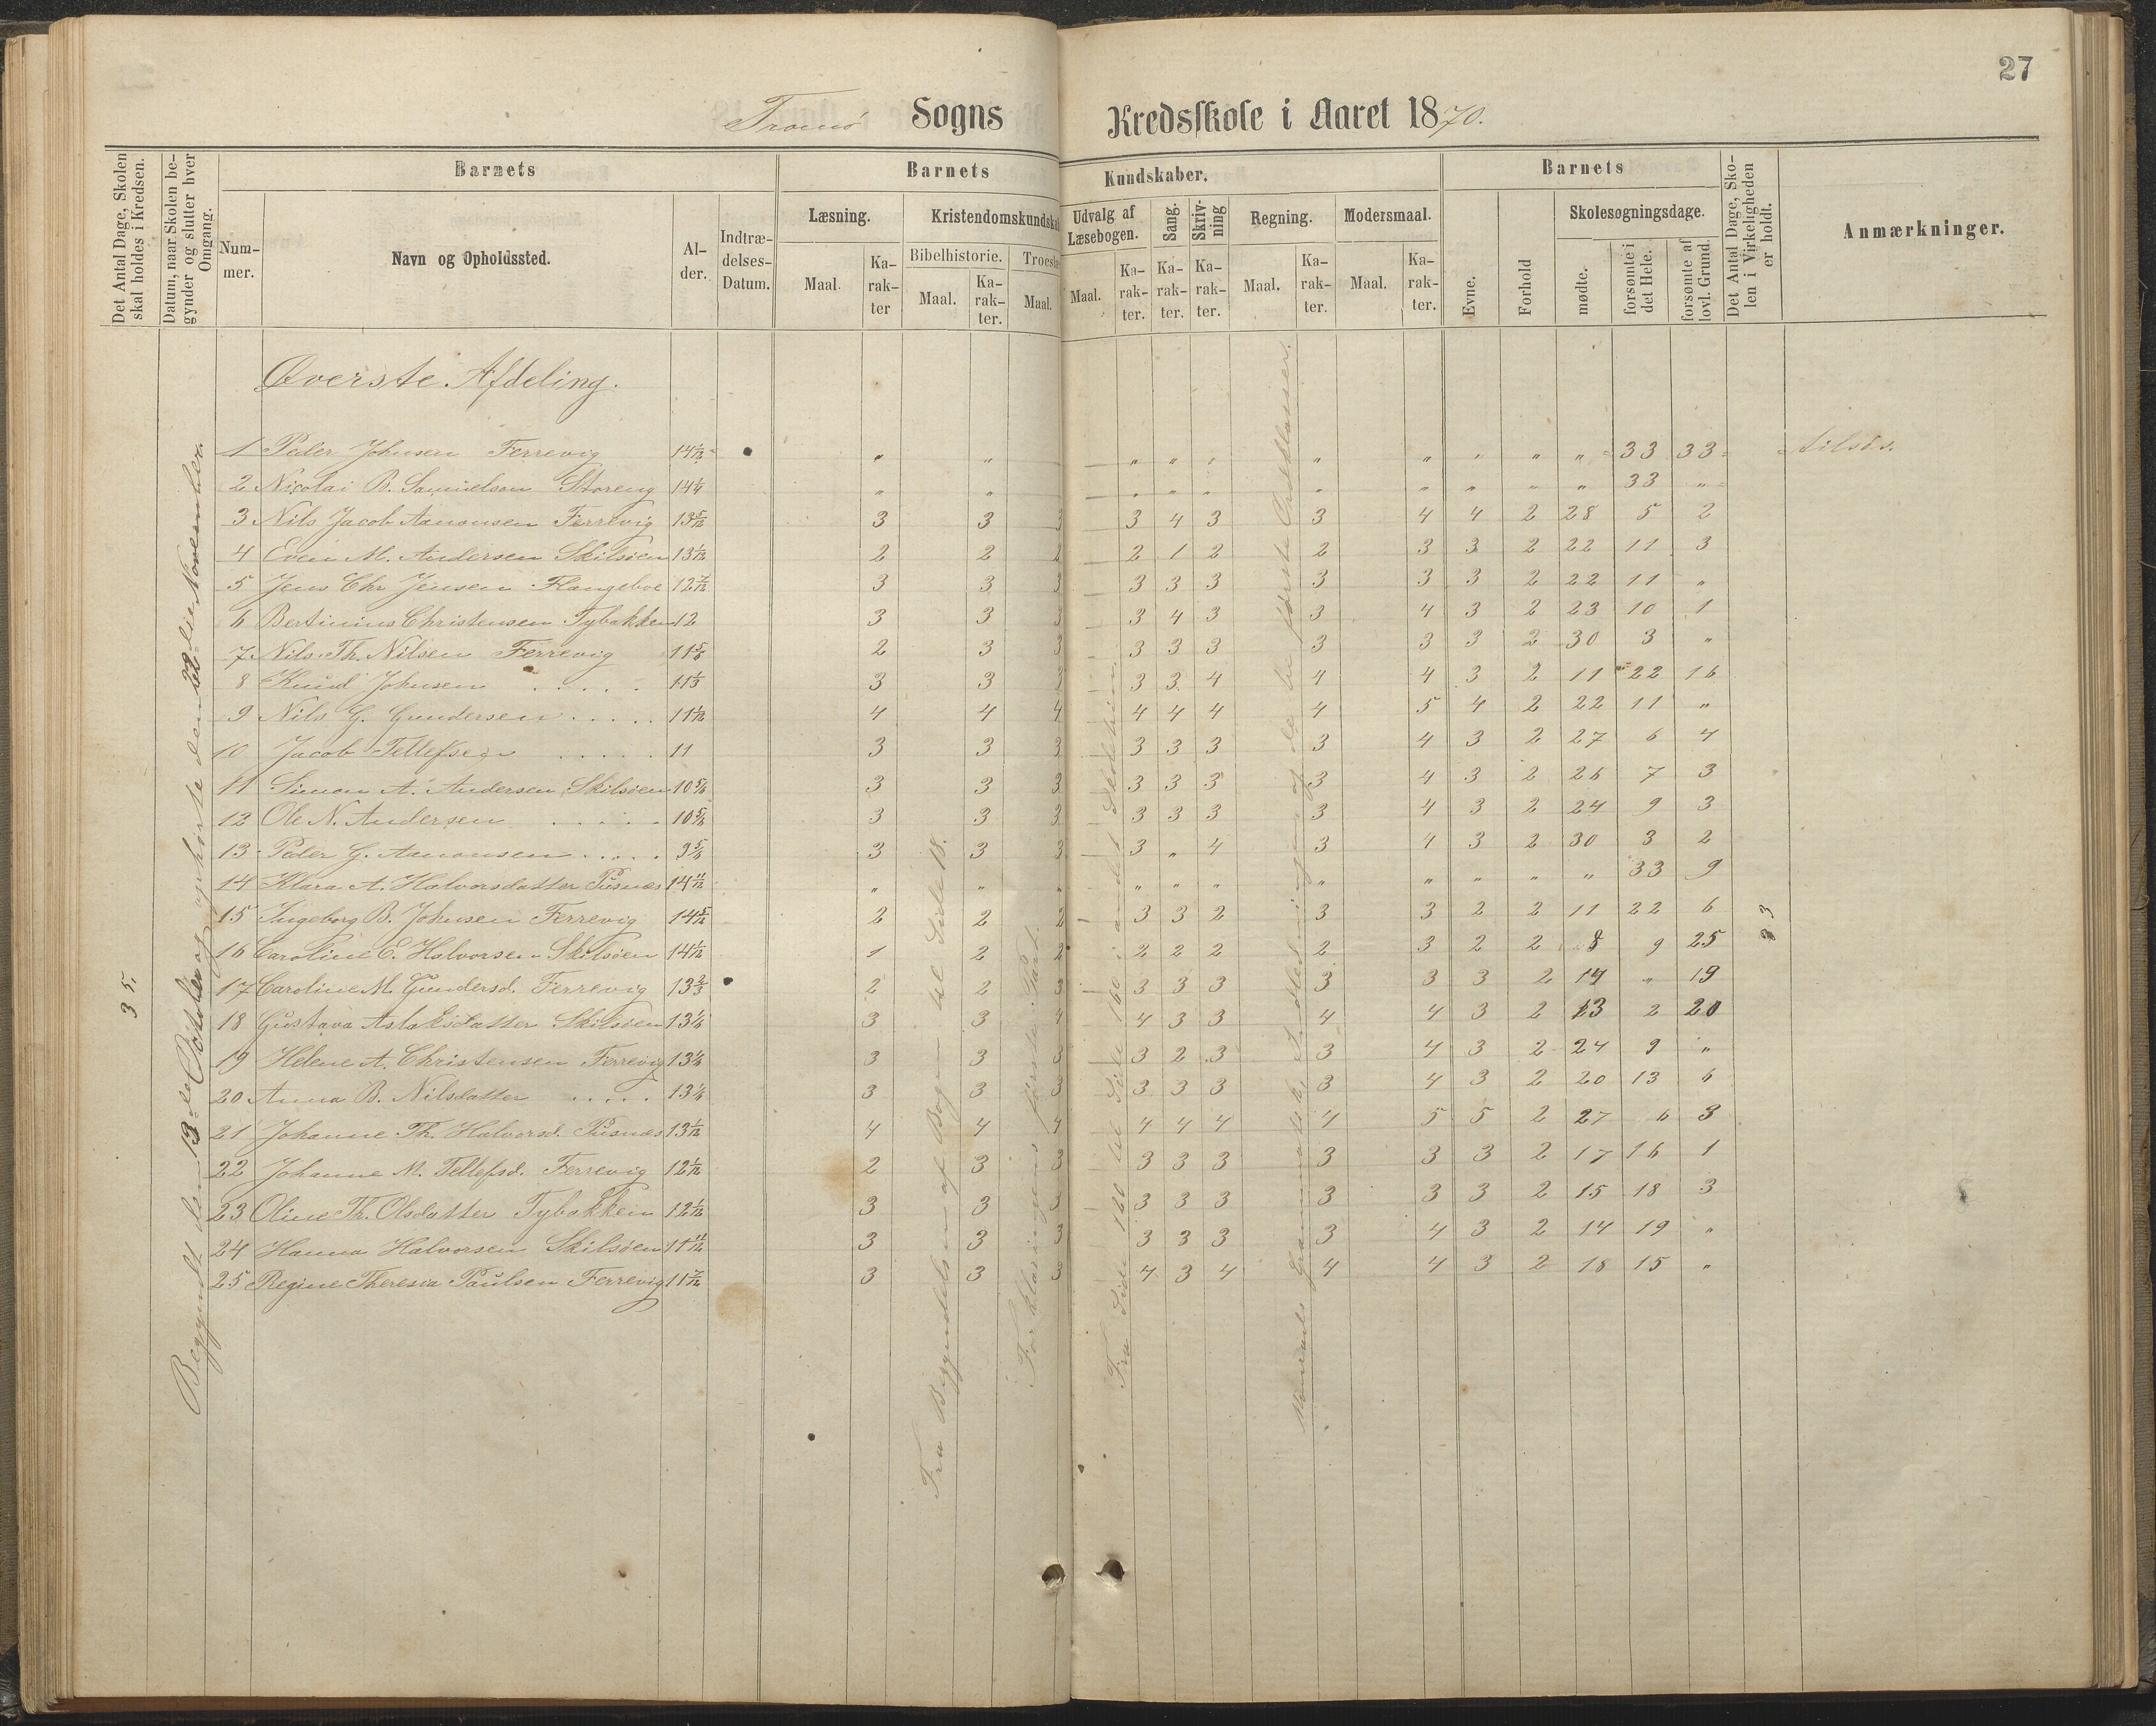 27
Tromø Sogns Kredsskole i Aaret 1870.
Det Antal Dage, Skolen skal holdes i Kredsen.
Datum, naar Skolen begynder og slutter hver Omgang.
Barnets
Nummer.
Navn og Opholdssted.
Alder.
Indtrædelses-Datum.
Barnets Kundskaber.
Læsning.
Maal.
Karakter
Kristendomskundskab
Bibelhistorie.
Maal.
Karakter.
Troeslære
Maal.
Udvalg af Læsebogen.
Maal.
Karakter.
Sang.
Karakter.
Skrivning
Karakter.
Regning.
Maal.
Karakter.
Modersmaal.
Maal.
Karakter.
Barnets
Evne.
Forhold
Skolesøgningsdage.
mødte.
forsømte i det Hele.
forsømte af lovl. Grund.
Det Antal Dage, Skolen i Virkeligheden er holdt.
Anmærkninger.
35.
Begyndt den 13de October og ophørte den 22de November.
Øverste Afdeling.
1 Peder Johnsen Ferrevig 14 1/12 " " " " " " " " " " " 33 33
2 Nicolai B. Samuelsen Storeng 14 1/4 " " " " " " " " " " 33 "
3 Nils Jacob Aanonsen Ferrevig 13 5/12 3 3 3 3 4 3 3 4 4 2 28 5 2
4 Even M. Andersen Skilsøen 13 1/12 2 2 2 2 1 2 2 3 3 2 22 11 3
5 Jens Chr Jensen Flangeboe 12 7/12 3 3 3 3 3 3 3 3 3 2 22 11 "
6 Bertinius Christensen Tybakken 12 3 3 3 3 4 3 3 4 3 2 23 10 1
7 Nils Th. Nilsen Ferrevig 11 5/6 2 3 3 3 3 3 3 3 3 2 30 3 "
8 Knud Johnsen . . . . . 11 1/3 3 3 3 3 3 4 4 4 3 2 11 22 16
9 Nils G. Gundersen . . . . . 11 1/12 4 4 4 4 4 4 4 5 4 2 22 11 "
10 Jacob Tellefsen . . . . . 11 3 3 3 3 3 3 3 4 3 2 27 6 4
11 Simon A. Andersen Skilsøen 10 5/6 3 3 3 3 3 3 3 4 3 2 26 7 3
12 Ole N. Andersen . . . . . 10 5/6 3 3 3 3 3 3 3 4 3 2 24 9 3
13 Peder G. Aanonsen . . . . . 9 5/6 3 3 3 3 " 4 3 4 3 2 30 3 2
14 Klara A. Halvorsdatter Pusnes 14 11/12 " " " " " " " " " " " 33 9
15 Ingeborg B. Johnsen Ferrevig 14 5/12 2 2 2 3 3 2 3 3 2 2 11 22 6
16 Caroline E. Halvorsen Skilsøen 14 1/12 1 2 2 2 2 2 2 3 2 2 8 9 25
17 Caroline M. Gundersd. Ferrevig 13 2/3 2 2 3 3 3 3 3 3 3 2 14 " 19
18 Gustava Aslaksdatter Skilsøen 13 1/6 3 3 4 4 3 3 4 4 3 2 13 2 20
19 Helene A. Christensen Ferrevig 13 1/6 3 3 3 3 2 3 3 4 3 2 24 9 "
20 Anna B. Nilsdatter . . . . . 13 1/6 3 3 3 3 3 3 3 4 3 2 20 13 6
21 Johanne Th. Halvorsd. Pusnes 13 1/12 4 4 4 4 4 4 4 5 5 2 27 6 3
22 Johanne M. Tellefsd. Ferrevig 12 1/12 2 3 3 3 3 3 3 3 3 2 17 16 1
23 Oline Th. Olsdatter Tybakken 12 1/12 3 3 3 3 3 3 3 3 3 2 15 18 3
24 Hanna Halvorsen Skilsøen 11 11/12 3 3 3 3 3 3 3 4 3 2 14 19 "
25 Regine Theresia Paulsen Ferrevig 11 7/12 3 3 3 4 3 4 4 4 3 2 18 15 "
Fra Begyndelsen af Bogen til Side 18.
Forklaringens første Part.
Fra Side 120 til Side 160 i andet Skoletrin.
Grammatik, Indledningen og de te første Ordklasser.
33